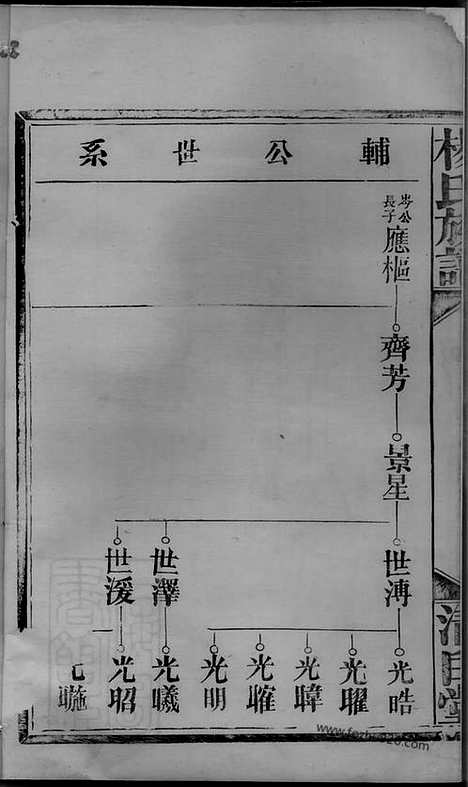 楊氏族譜
輔公世系
岑公長子應樞
齊芳
景星
世溥
世澤
世湲
光皓
光曜
光暲
光暛
光明
光曦
光昭
清白堂
www.fezupu20.com